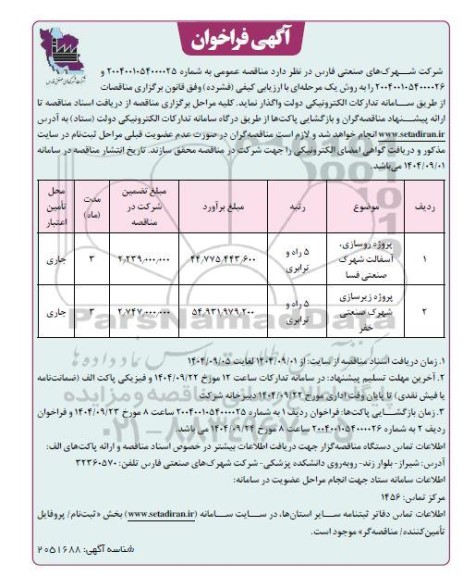 آگهی فراخوان
شرکت شهرک‌های صنعتی فارس در نظر دارد مناقصه عمومی به شماره ۲۰۰۴۰۰۱۰۵۴۰۰۰۰۲۵ و
۲۰۰۴۰۰۱۰۵۴۰۰۰۰۲۶ را به روش یک مرحله‌ای با ارزیابی کیفی (فشرده) وفق قانون برگزاری مناقصات
از طریق سامانه تدارکات الکترونیکی دولت واگذار نماید. کلیه مراحل برگزاری مناقصه از دریافت اسناد مناقصه تا
ارائه پیشنهاد مناقصه‌گران و بازگشایی پاکت‌ها از طریق درگاه سامانه تدارکات الکترونیکی دولت (ستاد) به آدرس
www.setadiran.ir انجام خواهد شد و لازم است مناقصه‌گران در صورت عدم عضویت قبلی مراحل ثبت‌نام در سایت
مذکور و دریافت گواهی امضای الکترونیکی را جهت شرکت در مناقصه محقق سازند. تاریخ انتشار مناقصه در سامانه
۱۴۰۴/۰۹/۰۱ می‌باشد.
ردیف موضوع رتبه مبلغ برآورد مبلغ تضمین شرکت در مناقصه مدت (ماه) محل تأمین اعتبار
۱ پروژه روسازی، آسفالت شهرک صنعتی فسا ۵ راه و ترابری ۴۴,۷۷۵,۴۴۳,۶۰۰ ۲,۲۳۹,۰۰۰,۰۰۰ ۳ جاری
۲ پروژه زیرسازی شهرک صنعتی خفر ۵ راه و ترابری ۵۴,۹۳۱,۹۷۹,۲۰۰ ۲,۷۴۷,۰۰۰,۰۰۰ ۳ جاری
۱. زمان دریافت اسناد مناقصه از سایت: از ۱۴۰۴/۰۹/۰۱ لغایت ۱۴۰۴/۰۹/۰۵
۲. آخرین مهلت تسلیم پیشنهاد: در سامانه تدارکات ساعت ۱۲ مورخ ۱۴۰۴/۰۹/۲۲ و فیزیکی پاکت الف (ضمانت‌نامه
یا فیش نقدی) تا پایان وقت اداری مورخ ۱۴۰۴/۰۹/۲۲ دبیرخانه شرکت
۳. زمان بازگشایی پاکت‌ها: فراخوان ردیف ۱ به شماره ۲۰۰۴۰۰۱۰۵۴۰۰۰۰۲۵ ساعت ۸ مورخ ۱۴۰۴/۰۹/۲۳ و فراخوان
ردیف ۲ به شماره ۲۰۰۴۰۰۱۰۵۴۰۰۰۰۲۶ ساعت ۸ مورخ ۱۴۰۴/۰۹/۲۴ می باشد.
اطلاعات تماس دستگاه مناقصه‌گزار جهت دریافت اطلاعات بیشتر در خصوص اسناد مناقصه و ارائه پاکت‌های الف:
آدرس: شیراز- بلوار زند- روبه‌روی دانشکده پزشکی- شرکت شهرک‌های صنعتی فارس تلفن: ۳۲۳۶۰۵۷۰
اطلاعات سامانه ستاد جهت انجام مراحل عضویت در سامانه:
مرکز تماس: ۱۴۵۶
اطلاعات تماس دفاتر ثبتنامه سایر استان‌ها، در سایت سامانه (www.setadiran.ir) بخش «ثبت‌نام/ پروفایل
تأمین‌کننده/ مناقصه‌گر» موجود است.
شناسه آگهی: ۲۰۵۱۶۸۸